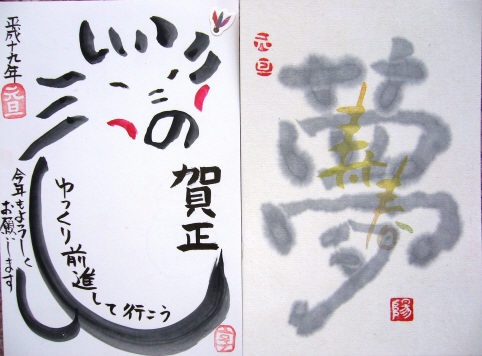 平成十九年
元旦
賀正
ゆっくり前進して行こう
今年もよろしく
お願いします
元旦
夢
寿春